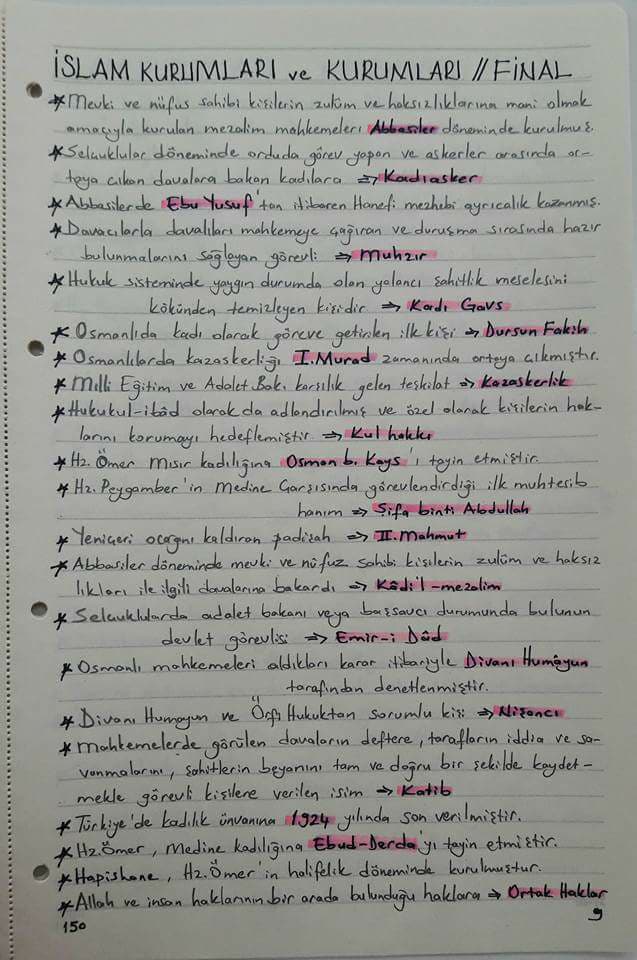 İSLAM KURUMLARI ve KURUMLARI // FİNAL
* Mevki ve nüfus sahibi kişilerin zulüm ve haksızlıklarına mani olmak
amacıyla kurulan mezalim mahkemeleri Abbasiler döneminde kurulmuş.
* Selçuklular döneminde orduda görev yapan ve askerler arasında or-
taya çıkan davalara bakan kadılara ⇒ Kadıasker
* Abbasilerde Ebu Yusuf'tan itibaren Hanefi mezhebi ayrıcalık kazanmış.
* Davacılarla davalıları mahkemeye çağıran ve duruşma sırasında hazır
bulunmalarını sağlayan görevli ⇒ Muhzır
* Hukuk sisteminde yaygın durumda olan yalancı şahitlik meselesini
kökünden temizleyen kişidir ⇒ Kadı Gavs
* Osmanlıda kadı olarak göreve getirilen ilk kişi ⇒ Dursun Fakih
* Osmanlılarda kazaskerliği I. Murad zamanında ortaya çıkmıştır.
* Milli Eğitim ve Adalet Bak. karşılık gelen teşkilat ⇒ Kazaskerlik
* Hukukul-ibâd olarak da adlandırılmış ve özel olarak kişilerin hak-
larını korumayı hedeflemiştir ⇒ Kul hakkı
* Hz. Ömer Mısır kadılığına Osman b. Kays'ı tayin etmiştir.
* Hz. Peygamber'in Medine Çarşısında görevlendirdiği ilk muhtesib
hanım ⇒ Şifa binti Abdullah
* Yeniçeri ocağını kaldıran padişah ⇒ II. Mahmut
* Abbasiler döneminde mevki ve nüfuz sahibi kişilerin zulüm ve haksız
lıkları ile ilgili davalarına bakardı ⇒ Kâdi'l-mezalim
* Selçuklularda adalet bakanı veya başsavcı durumunda bulunun
devlet görevlisi ⇒ Emir-i Dâd
* Osmanlı mahkemeleri aldıkları karar itibariyle Divanı Humâyun
tarafından denetlenmiştir.
* Divanı Humayun ve Örfi Hukuktan sorumlu kişi ⇒ Nişancı
* Mahkemelerde görülen davaların deftere, tarafların iddia ve sa-
vunmalarını, şahitlerin beyanını tam ve doğru bir şekilde kaydet-
mekle görevli kişilere verilen isim ⇒ Katib
* Türkiye'de kadılık ünvanına 1924 yılında son verilmiştir.
* Hz. Ömer, Medine kadılığına Ebud-Derda'yı tayin etmiştir.
* Hapishane, Hz. Ömer'in halifelik döneminde kurulmuştur.
* Allah ve insan haklarının bir arada bulunduğu haklara ⇒ Ortak Haklar
150
9